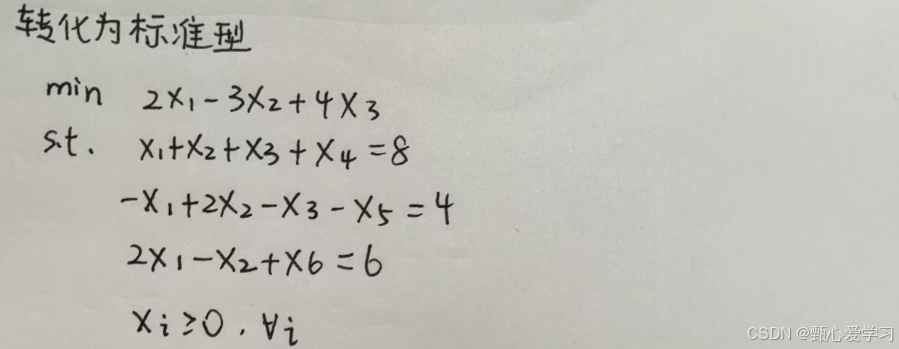 转化为标准型
min 2x₁-3x₂+4x₃
s.t. x₁+x₂+x₃+x₄=8
-x₁+2x₂-x₃-x₅=4
2x₁-x₂+x₆=6
xᵢ≥0,∀i
CSDN @甄心爱学习